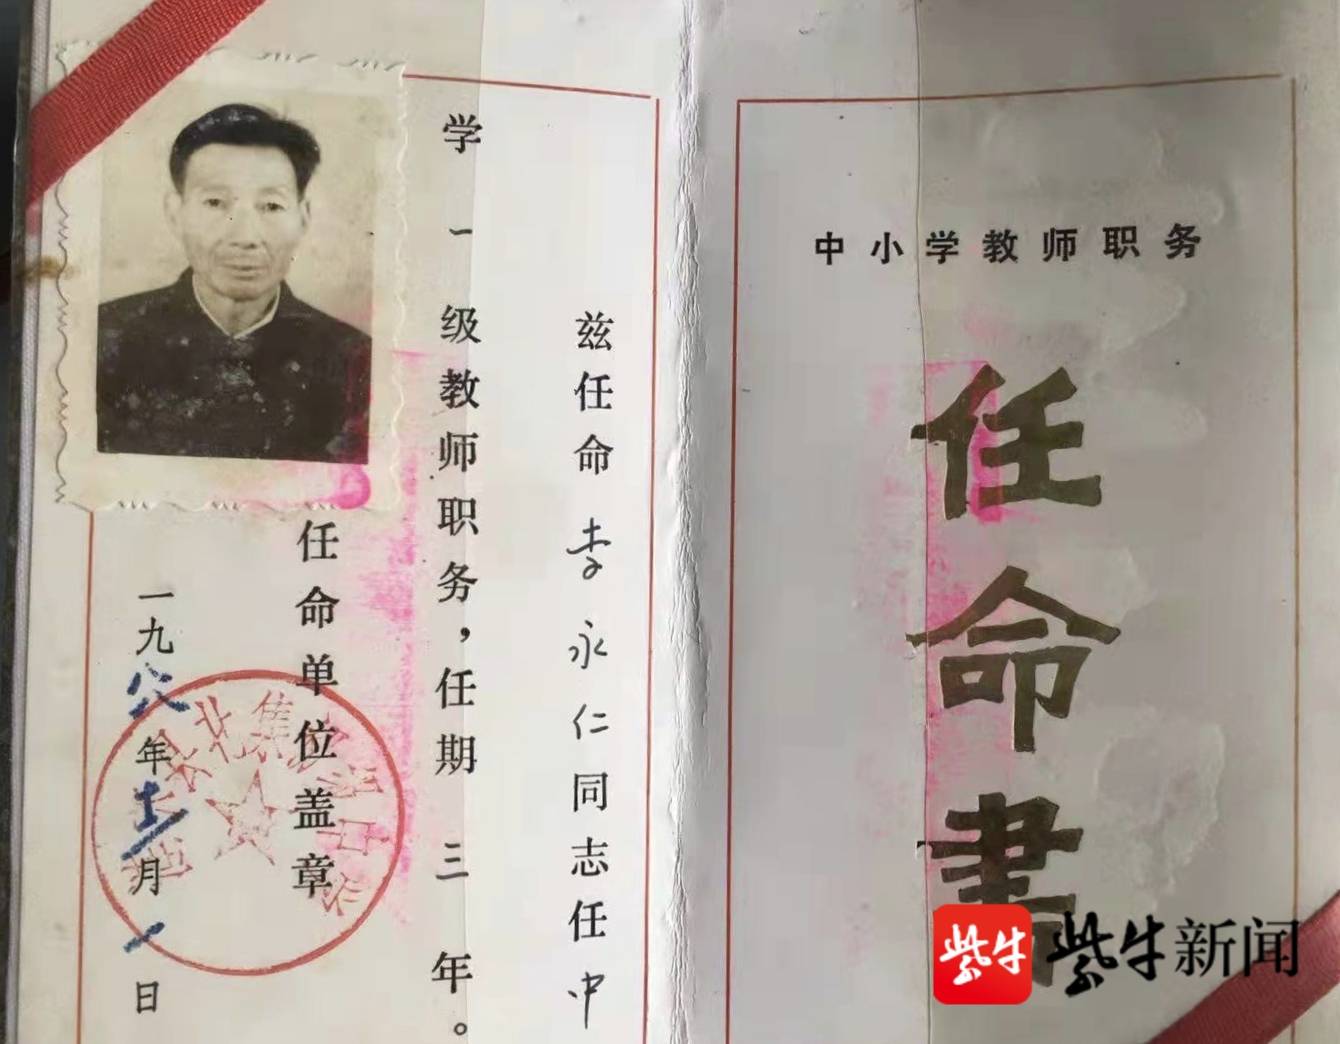 中小学教师职务
任命書
兹任命李永仁同志任中
学一级教师职务，任期三年。
任命单位盖章
一九八八年十二月一日
紫牛
紫牛新闻